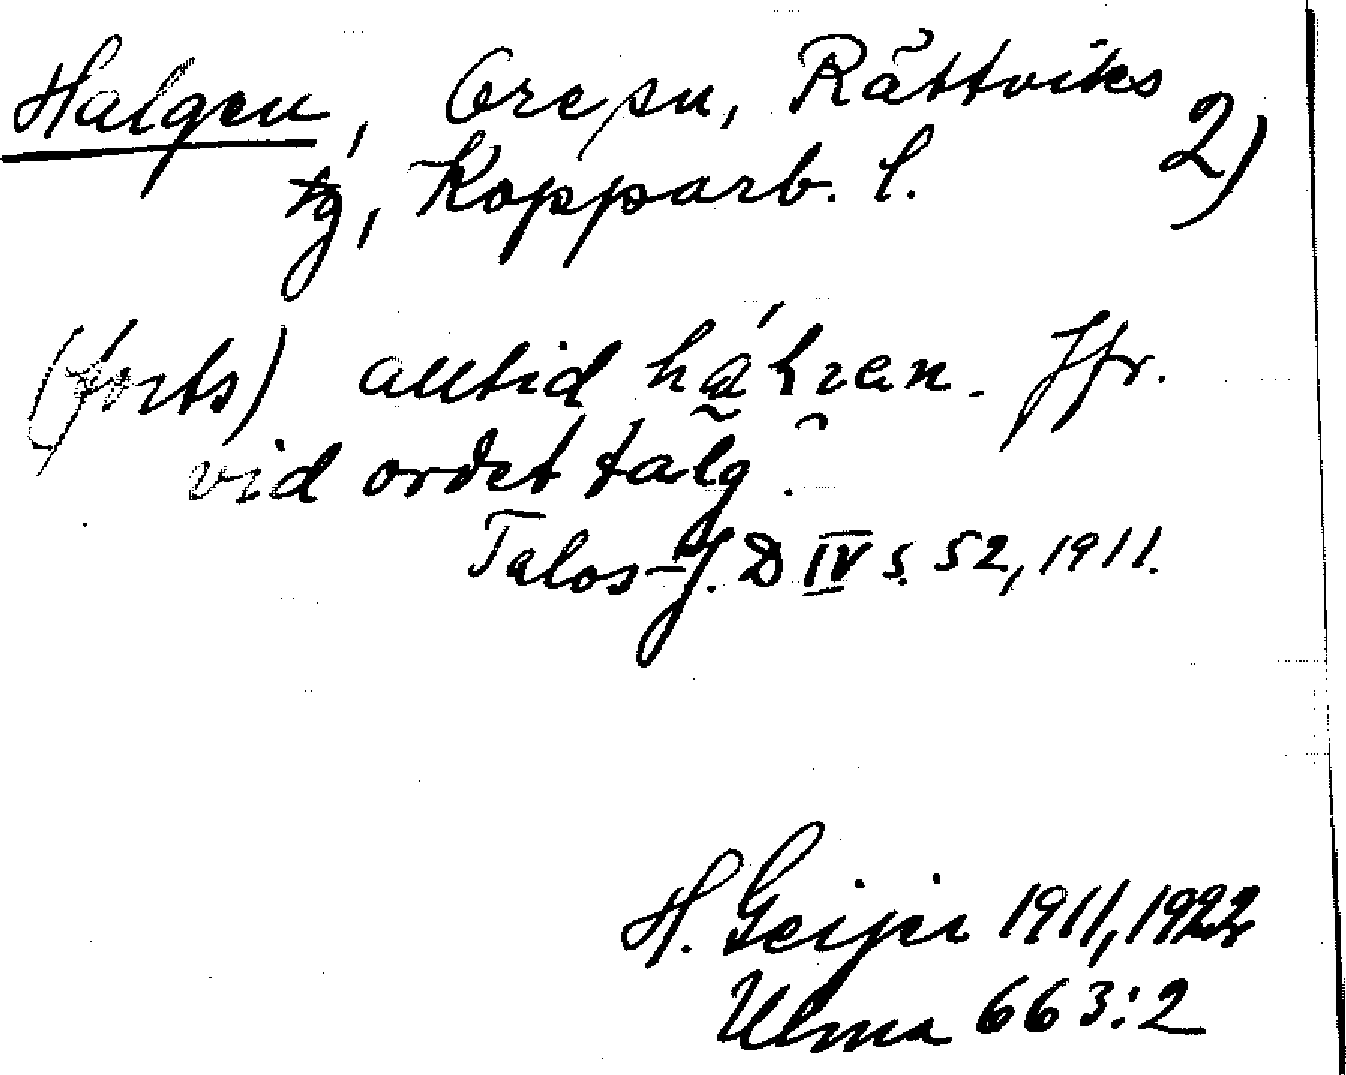 Halgen, Ore sn, Rättviks 2)
tg, Kopparb. l.
(forts) alltid Jfr.
vid ordet talg.
Talos-J. D IV s. 52, 1911.
H. Geijer 1911, 1922
Ulma 663:2